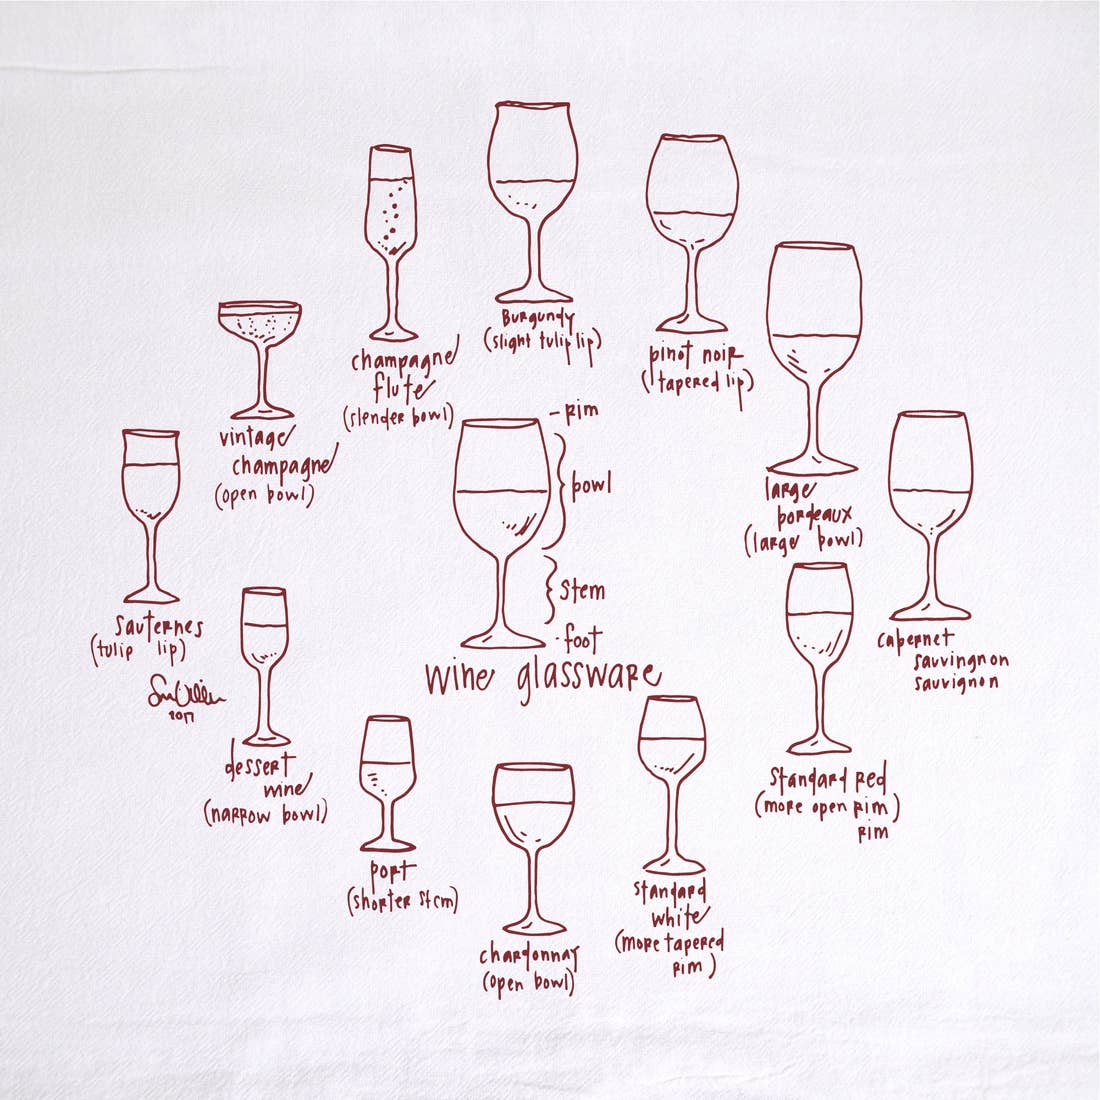 Burgundy
(slight tulip lip)
champagne
flute
(slender bowl)
pinot noir
(tapered lip)
vintage
champagne
(open bowl)
large
bordeaux
(large bowl)
rim
bowl
stem
foot
wine glassware
sauternes
(tulip lip)
2017
cabernet
sauvingnon
sauvignon
dessert
wine
(narrow bowl)
standard red
(more open rim)
rim
port
(shorter stem)
standard
white
(more tapered
rim)
chardonnay
(open bowl)